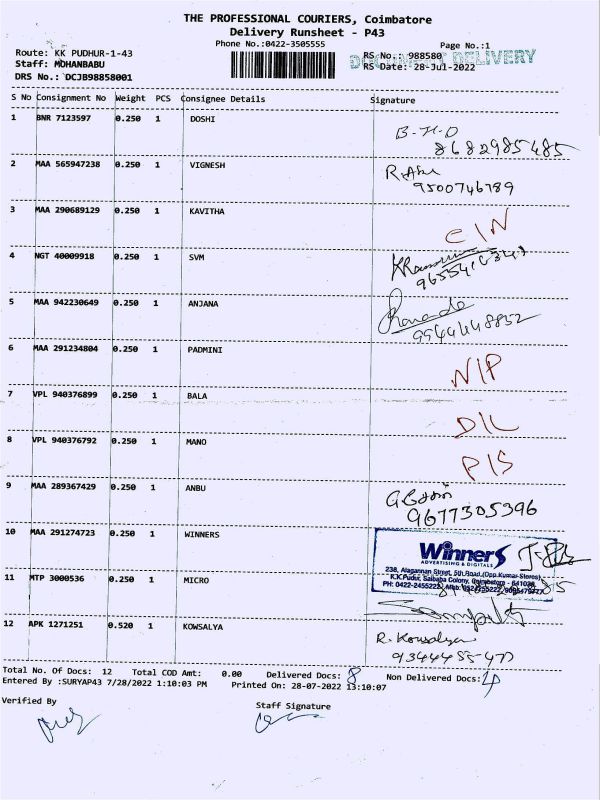 THE PROFESSIONAL COURIERS, Coimbatore
Delivery Runsheet - P43
Phone No.:0422-3505555
Page No.:1
Route: KK PUDHUR-1-43
RS No.: 988580
DELIVERY
Staff: MOHANBABU
RS Date: 28-Jul-2022
DRS No.: DCJB98858001
S No Consignment No Weight PCS Consignee Details Signature
1 BNR 7123597 0.250 1 DOSHI
B-H-O
8682985485
2 MAA 565947238 0.250 1 VIGNESH
9500746789
3 MAA 290689129 0.250 1 KAVITHA
C/N
4 NGT 40009918 0.250 1 SVM
5 MAA 942230649 0.250 1 ANJANA
6 MAA 291234804 0.250 1 PADMINI
N/P
7 VPL 940376899 0.250 1 BALA
D/L
8 VPL 940376792 0.250 1 MANO
P/S
9 MAA 289367429 0.250 1 ANBU
9677305396
10 MAA 291274723 0.250 1 WINNERS
Winners
ADVERTISING & DIGITALS
238, Alagannan Street, 5th Road,(Opp.Kumar Stores)
K.K.Pudur, Saibaba Colony, Coimbatore - 641038.
PH: 0422-2455222,
11 MTP 3000536 0.250 1 MICRO
12 APK 1271251 0.520 1 KOWSALYA
R. Kowsalya
Total No. Of Docs: 12 Total COD Amt: 0.00 Delivered Docs: 8 Non Delivered Docs: 4
Entered By :SURYAP43 7/28/2022 1:10:03 PM Printed On: 28-07-2022 13:10:07
Verified By
Staff Signature